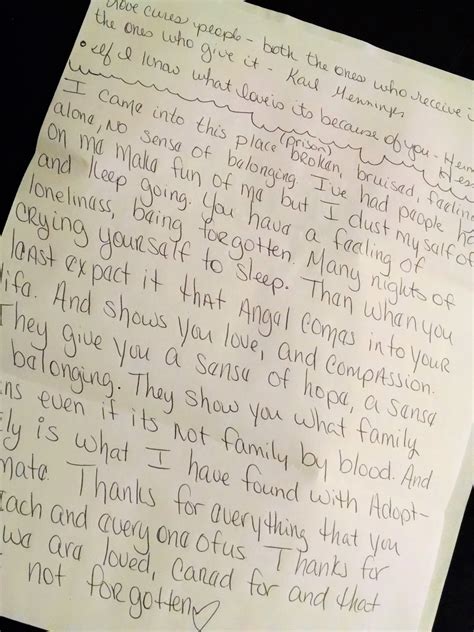 Love cures people - both the ones who receive i
the ones who give it - Karl Menninger
• If I know what love is its because of you - Herm
Hess
I came into this place (prison) broken, bruised, feeling
alone, No sense of belonging. I've had people ha
on me make fun of me but I dust myself of
and keep going. You have a feeling of
loneliness, being forgotten. Many nights of
crying yourself to sleep. Than when you
least expect it that Angel comes into your
life. And shows you love, and compassion.
They give you a sense of hope, a sense
belonging. They show you what family
ns even if its not family by blood. And
ly is what I have found with Adopt-
mate. Thanks for everything that you
each and every one of us Thanks for
we are loved, cared for and that
not forgotten♡